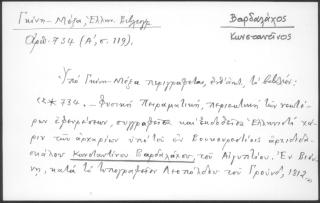 Γκίνη-Μέξα, Ἑλλην. Βιβλιογρ.
Ἀριθ. 734 (Α', σ. 119).
Βαρδαλάχος
Κωνσταντῖνος
Ὑπὸ Γκίνη-Μέξα περιγράφεται, τὸ βιβλίον:
«* 734. – Φυσικὴ Πειραματική, περιεκτικὴ τῶν νεωτέ-
ρων ἐφευρέσεων, συγγραφεῖσα καὶ ἐκδοθεῖσα Ἑλληνιστὶ χά-
ριν τῶν ἀρχαρίων ὑπὸ τοῦ ἐν Βουκουρεστίοις ἀρχιδιδα-
σκάλου Κωνσταντίνου Βαρδαλάχου, τοῦ Αἰγυπτίου. Ἐν Βιέν-
νῃ, κατὰ τὸ Τυπογραφεῖον Λεοπόλδου τοῦ Γρούνδ, 1812.